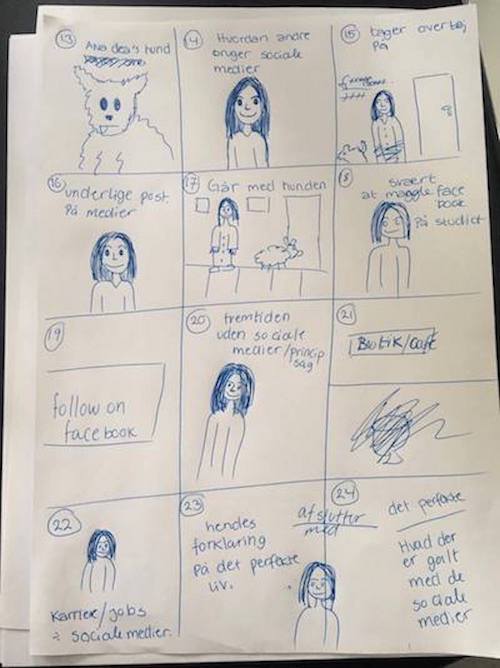 13
Andrea's hund
14
Hvordan andre
bruger sociale
medier
15
tager overtøj
på
16
underlige post
på medier
17
Går med hunden
18
svært
at mangle face
book
på studiet
19
follow on
facebook
20
fremtiden
uden sociale
medier/princip
sag
21
Butik/café
22
Karriere/jobs
i sociale medier.
23
hendes
forklaring
på det perfekte
liv.
afslutter
med
24
det perfekte
Hvad der
er galt
med de
sociale
medier